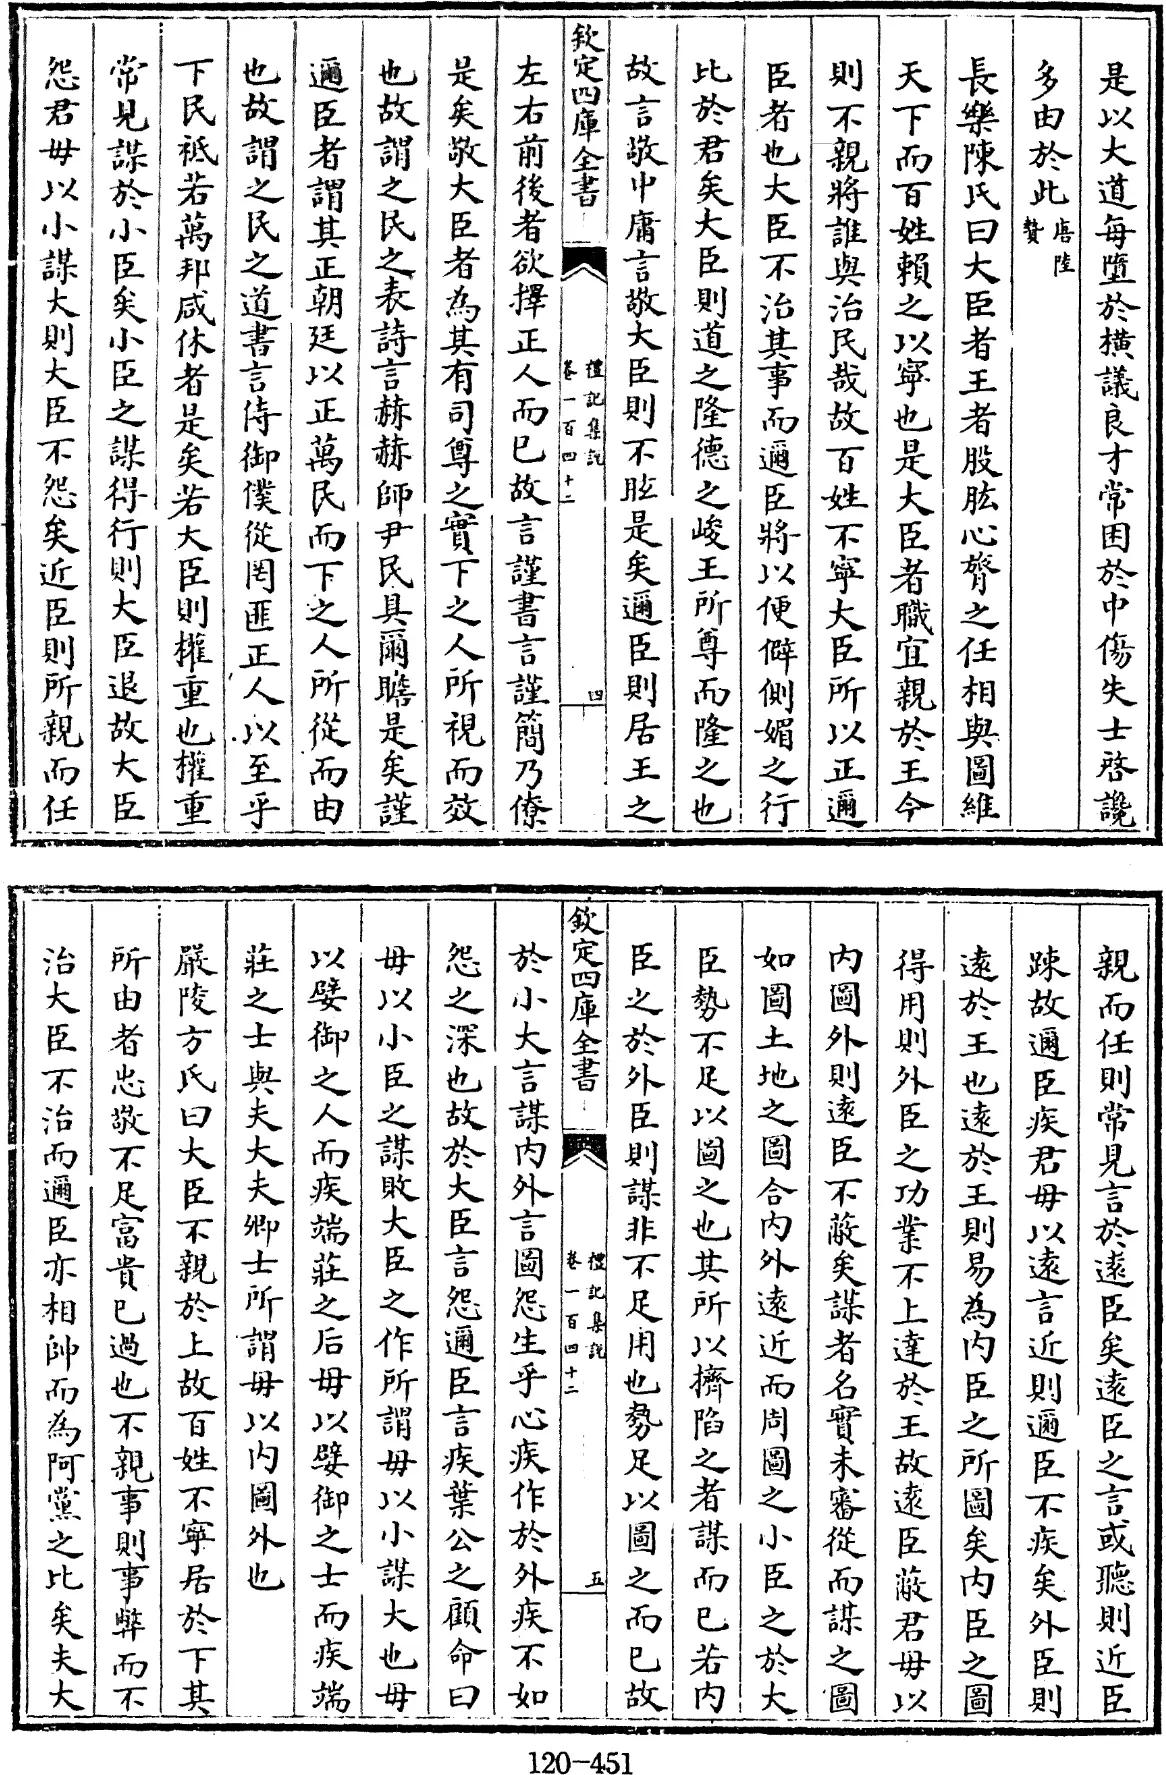 是以大道每墮於橫議良才常困於中傷失士啓讒
多由於此唐陸
贄
長樂陳氏曰大臣者王者股肱心膂之任相與圖維
天下而百姓賴之以寧也是大臣者職宜親於王今
則不親將誰與治民哉故百姓不寧大臣所以正邇
臣者也大臣不治其事而邇臣將以便僻側媚之行
比於君矣大臣則道之隆德之峻王所尊而隆之也
故言敬中庸言敬大臣則不眩是矣邇臣則居王之
欽定四庫全書
禮記集説
卷一百四十二
四
左右前後者欲擇正人而已故言謹書言謹簡乃僚
是矣敬大臣者為其有司尊之實下之人所視而效
也故謂之民之表詩言赫赫師尹民具爾瞻是矣謹
邇臣者謂其正朝廷以正萬民而下之人所從而由
也故謂之民之道書言侍御僕從罔匪正人以至乎
下民祗若萬邦咸休者是矣若大臣則權重也權重
常見謀於小臣矣小臣之謀得行則大臣退故大臣
怨君毋以小謀大則大臣不怨矣近臣則所親而任
親而任則常見言於遠臣矣遠臣之言或聽則近臣
踈故邇臣疾君毋以遠言近則邇臣不疾矣外臣則
遠於王也遠於王則易為内臣之所圖矣内臣之圖
得用則外臣之功業不上達於王故遠臣蔽君毋以
内圖外則遠臣不蔽矣謀者名實未審從而謀之圖
如圖土地之圖合内外遠近而周圖之小臣之於大
臣勢不足以圖之也其所以擠陷之者謀而已若内
臣之於外臣則謀非不足用也勢足以圖之而已故
欽定四庫全書
禮記集説
卷一百四十二
五
於小大言謀内外言圖怨生乎心疾作於外疾不如
怨之深也故於大臣言怨邇臣言疾葉公之顧命曰
毋以小臣之謀敗大臣之作所謂毋以小謀大也毋
以嬖御之人而疾端莊之后毋以嬖御之士而疾端
莊之士與夫大夫卿士所謂毋以内圖外也
嚴陵方氏曰大臣不親於上故百姓不寧居於下其
所由者忠敬不足富貴已過也不親事則事弊而不
治大臣不治而邇臣亦相帥而為阿黨之比矣夫大
120-451